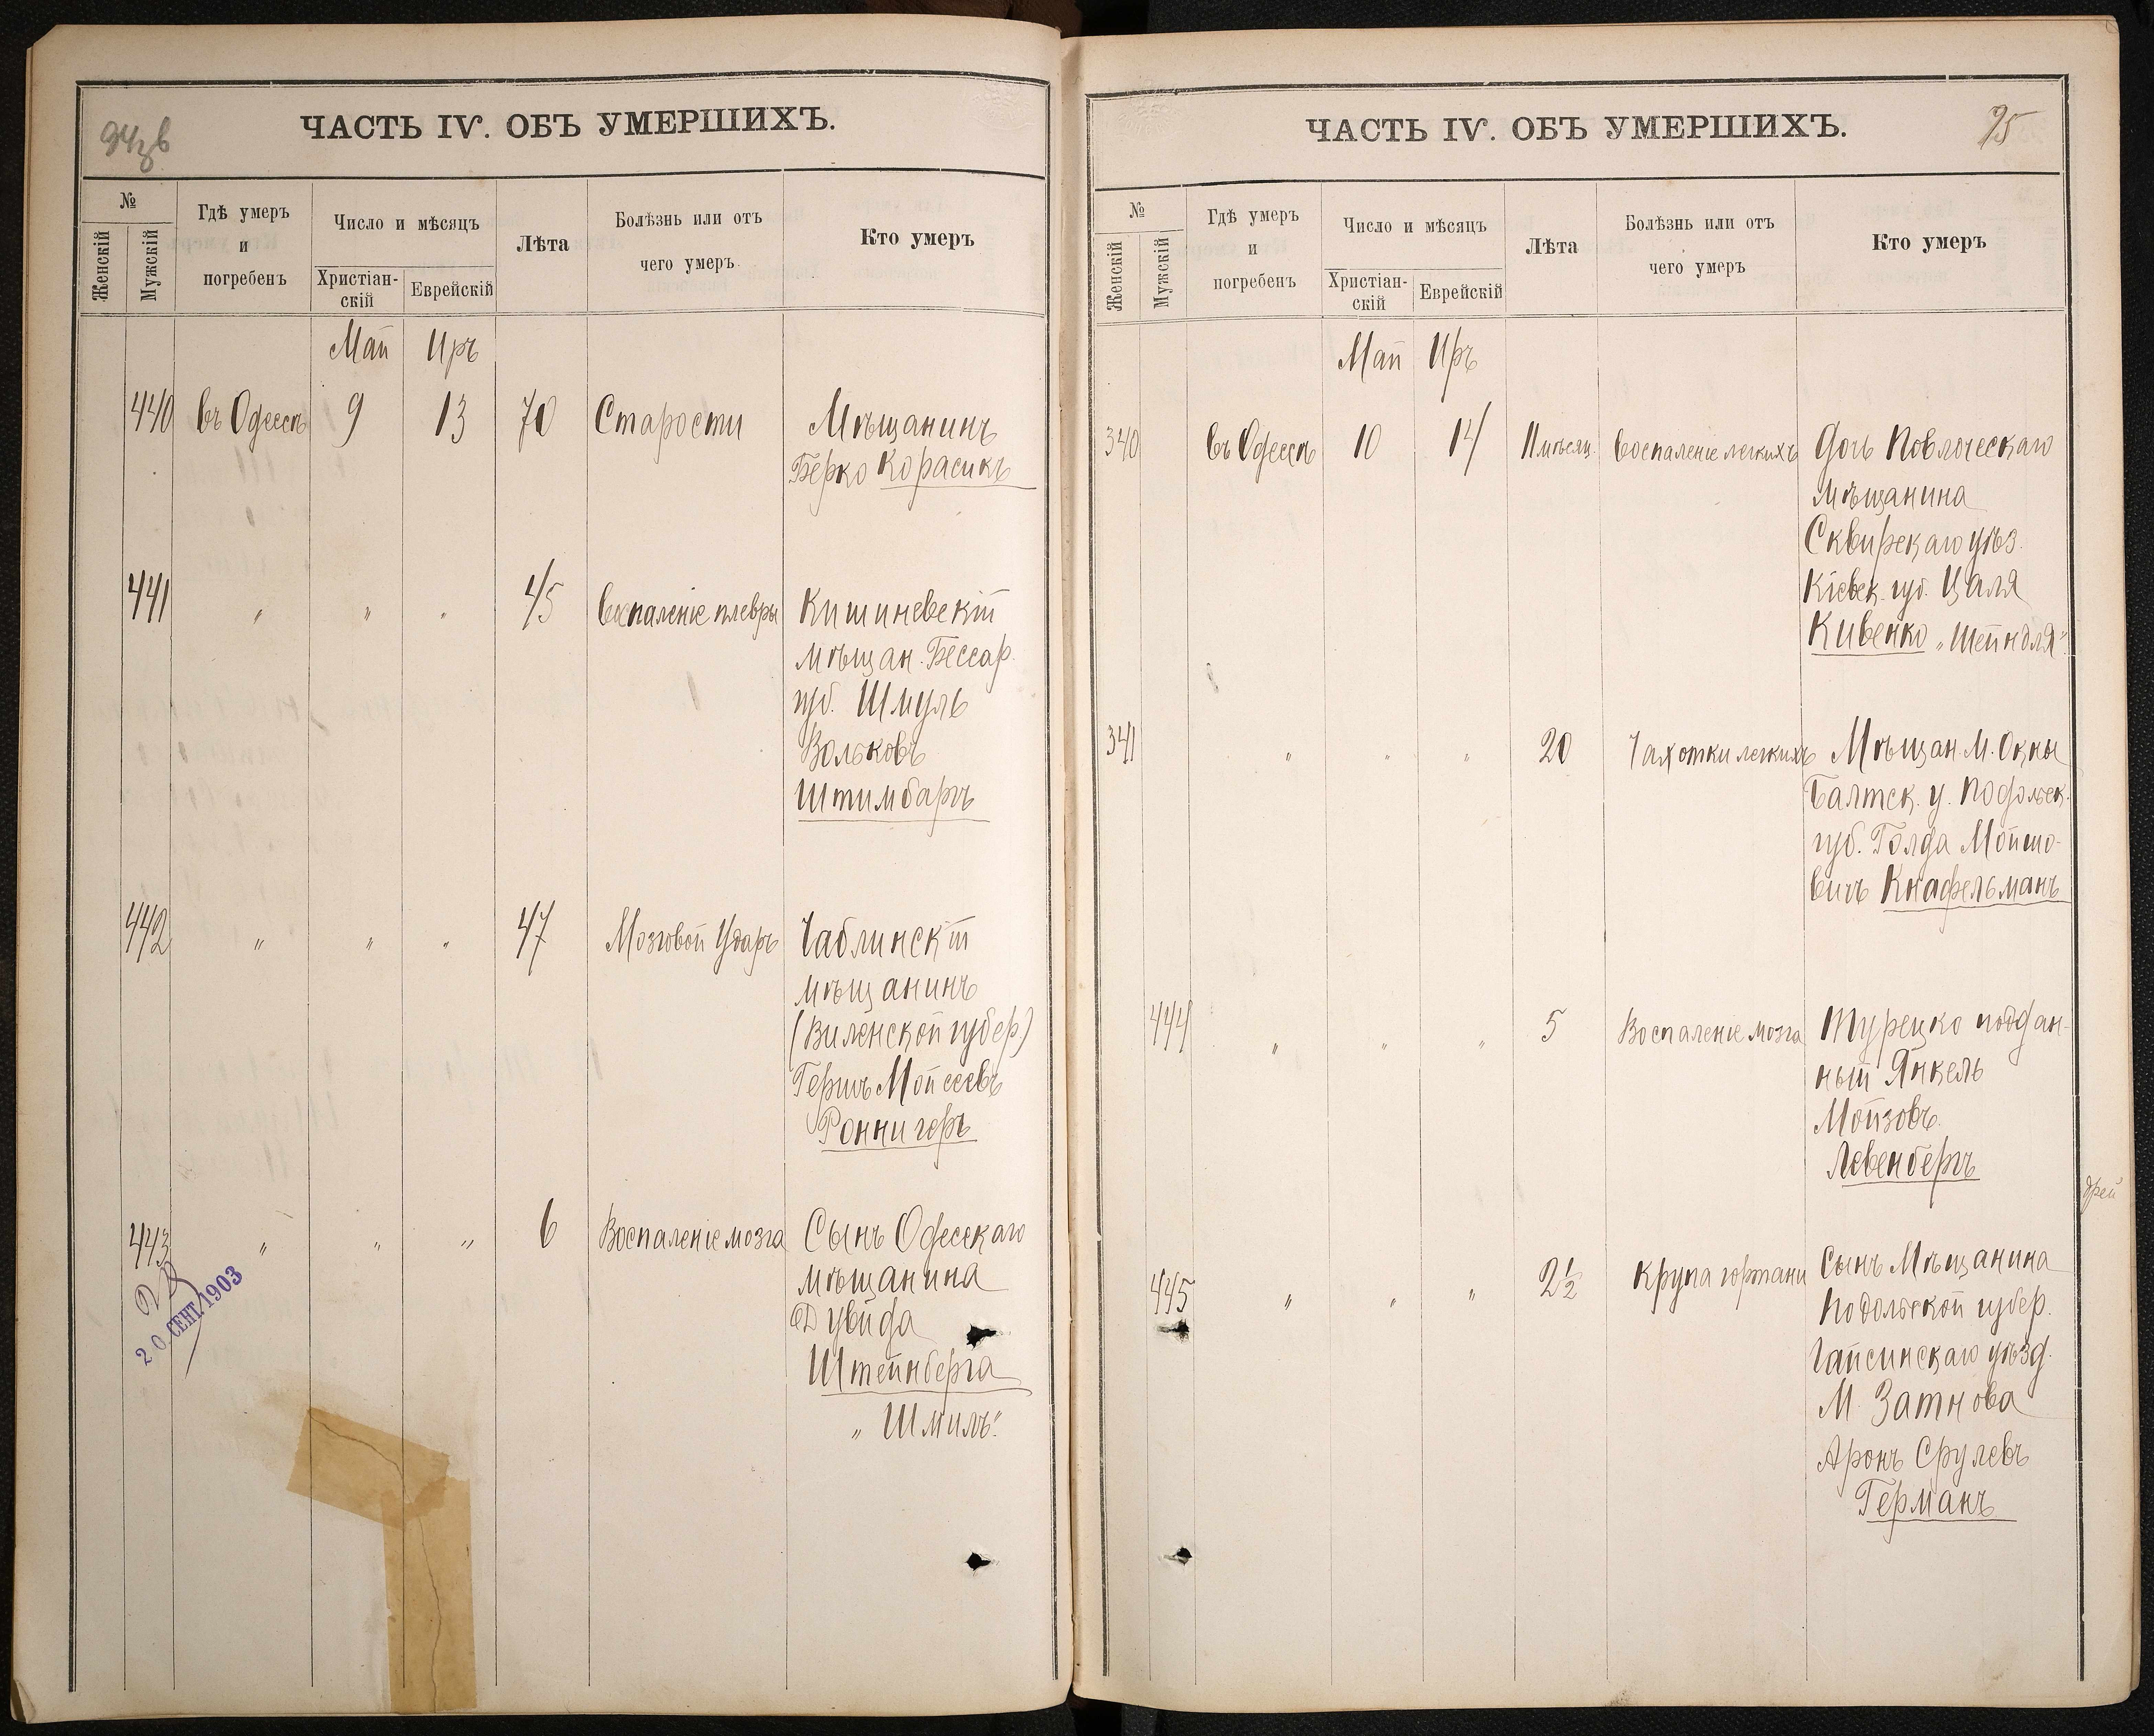 94зв
ЧАСТЬ IV. ОБЪ УМЕРШИХЪ.
№
Женскій
Мужскій
Гдѣ умеръ
и
погребенъ
Число и мѣсяцъ
Христіан-
скій
Еврейскій
Лѣта
Болѣзнь или отъ
чего умеръ
Кто умеръ
Май Иръ
440 въ Одессѣ 9 13 70 Старости Мѣщанинъ
Берко Корасикъ
441 " " " 45 Воспаленіе плевры Кишиневскій
мѣщан. Бессар.
губ. Шмуль
Вольковъ
Штимбаргъ
442 " " " 47 Мозговой Ударъ Чаблинскій
мѣщанинъ
(Виленской губер.)
Гершъ Мойсеевъ
Роннигеръ
443 " " " 6 Воспаленіе мозга Сынъ Одесскаго
мѣщанина
Дувида
Штейнберга
„Шмиль"
20 СЕНТ. 1903
95
ЧАСТЬ IV. ОБЪ УМЕРШИХЪ.
№
Женскій
Мужскій
Гдѣ умеръ
и
погребенъ
Число и мѣсяцъ
Христіан-
скій
Еврейскій
Лѣта
Болѣзнь или отъ
чего умеръ
Кто умеръ
Май Иръ
340 въ Одессѣ 10 14 11 мѣсяц. Воспаленіе легкихъ Дочь Поволоческаго
мѣщанина
Сквирскаго уѣз.
Кіевск. губ. Цаля
Кивенко „Шейндля"
341 " " " 20 Чахотки легкихъ Мѣщан. М. Окны
Балтск. у. Подольск.
губ. Голда Мойшо-
вичъ Кнафельманъ
444 " " " 5 Воспаленіе мозга Турецко поддан-
ный Янкель
Мойзовъ
Левенбергъ
445 " " " 2½ Крупа гортани Сынъ Мѣщанина
Подольской губер.
Гайсинскаго уѣзд.
М. Заткова
Аронъ Срулевъ
Германъ